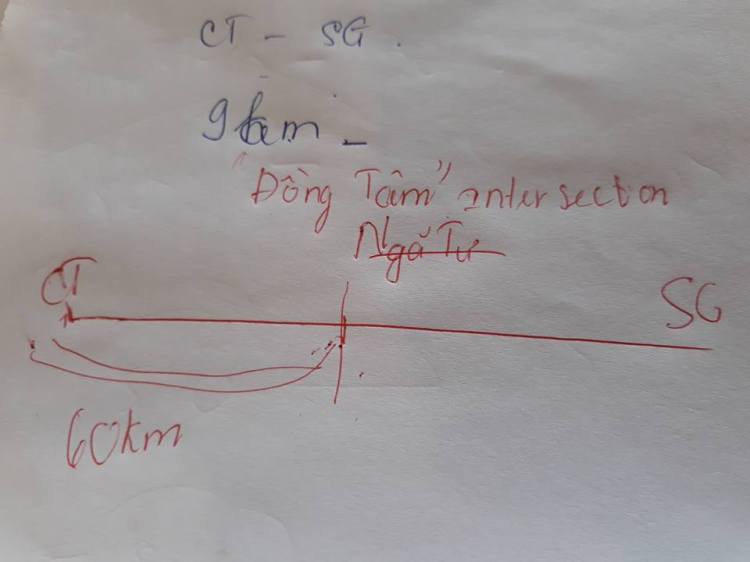 CT - SG.
9 am -
"Đồng Tâm" intersection
Ngã Tư
CT SG
60km